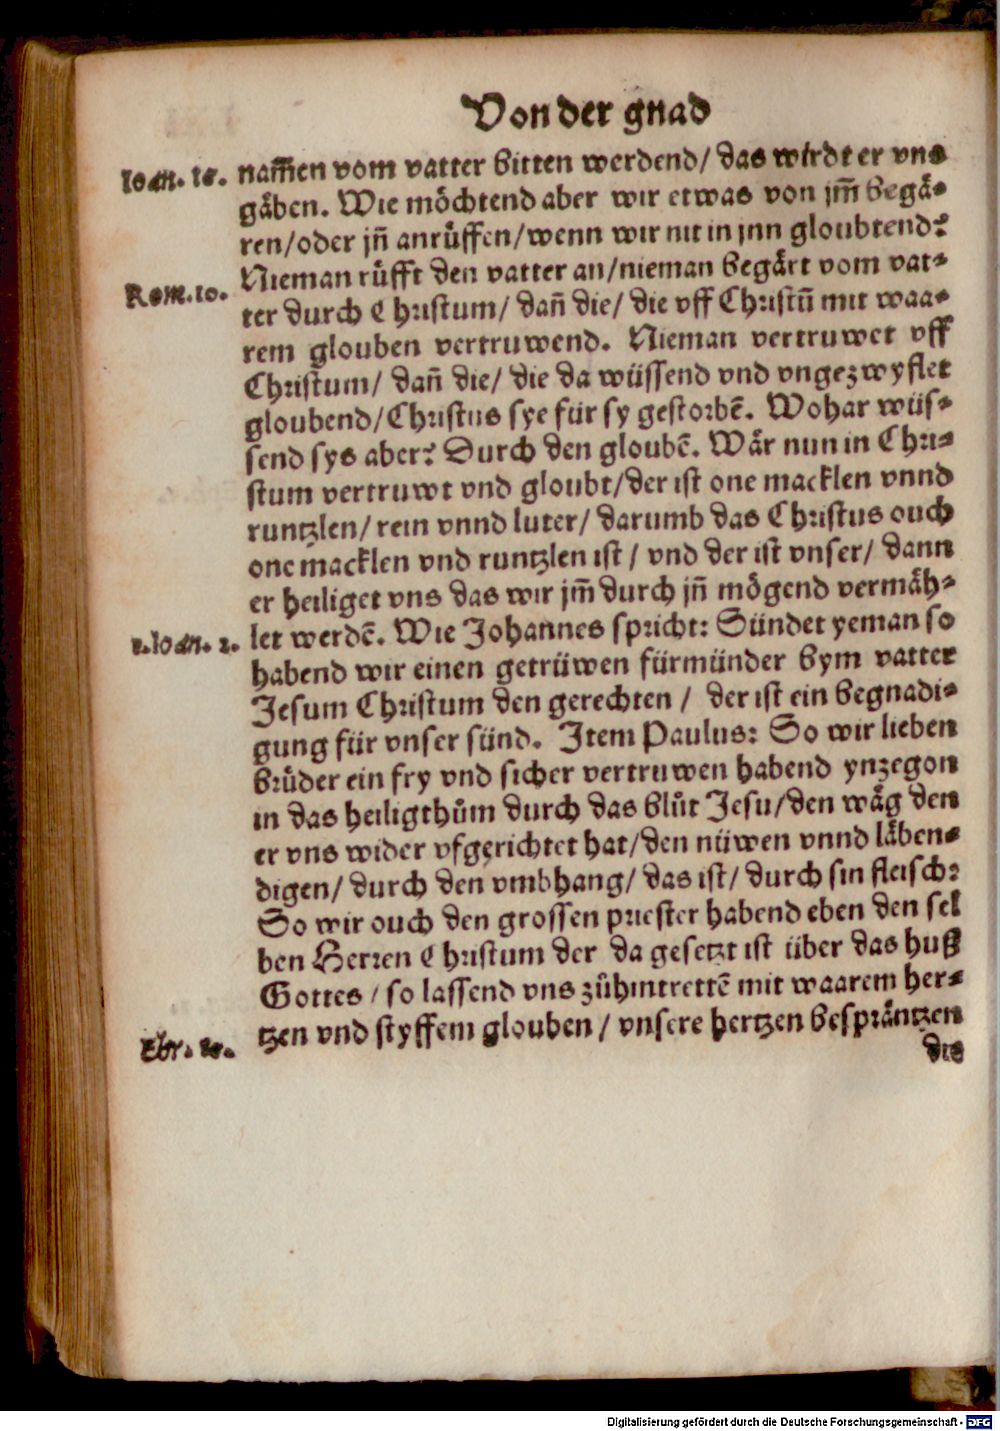 Von der gnad
Ioan. 16. nam̃en vom vatter bitten werdend/ das wirdt er vns
gäben. Wie möchtend aber wir etwas von jm̃ begä-
ren/oder jñ anrüffen/wenn wir nit in jnn gloubtend?
Rom. 10. Nieman rüfft den vatter an/nieman begärt vom vat-
ter durch Christum/ dañ die/ die vff Christũ mit waa-
rem glouben vertruwend. Nieman vertruwet vff
Christum/ dañ die/ die da wüssend vnd vngezwyflet
gloubend/Christus sye für sy gestorbẽ. Wohar wüs-
send sys aber? Durch den gloubẽ. Wär nun in Chri-
stum vertruwt vnd gloubt/der ist one macklen vnnd
runtzlen/ rein vnnd luter/ darumb das Christus ouch
one macklen vnd runtzlen ist/ vnd der ist vnser/ dann
er heiliget vns das wir jm̃ durch jñ mögend vermäh-
1. Ioan. 2. let werdẽ. Wie Johannes spricht: Sündet yeman so
habend wir einen getrüwen fürmünder bym vatter
Jesum Christum den gerechten/ der ist ein begnadi-
gung für vnser sünd. Item Paulus: So wir lieben
brüder ein fry vnd sicher vertruwen habend ynzegon
in das heiligthům durch das blůt Jesu/den wäg den
er vns wider vfgerichtet hat/den nüwen vnnd läben-
digen/ durch den vmbhang/ das ist/ durch sin fleisch:
So wir ouch den grossen priester habend eben den sel
ben Herren Christum der da gesetzt ist über das huß
Gottes/ so lassend vns zůhintrettẽ mit waarem her-
Ebr. 10. tzen vnd styffem glouben/ vnsere hertzen bespräntzen
die
Digitalisierung gefördert durch die Deutsche Forschungsgemeinschaft - DFG